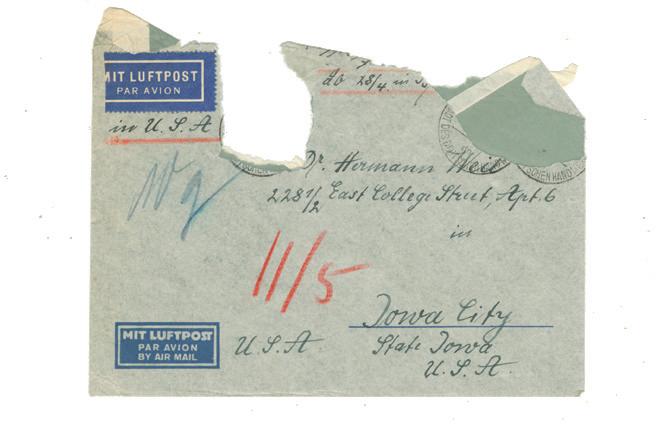 MIT LUFTPOST
PAR AVION
in U.S.A
ab 28/4 in
Dr. Hermann Weil
228 1/2 East College Street, Apt. 6
in
11/5
Iowa City
State Iowa
U.S.A.
U.S.A
MIT LUFTPOST
PAR AVION
BY AIR MAIL